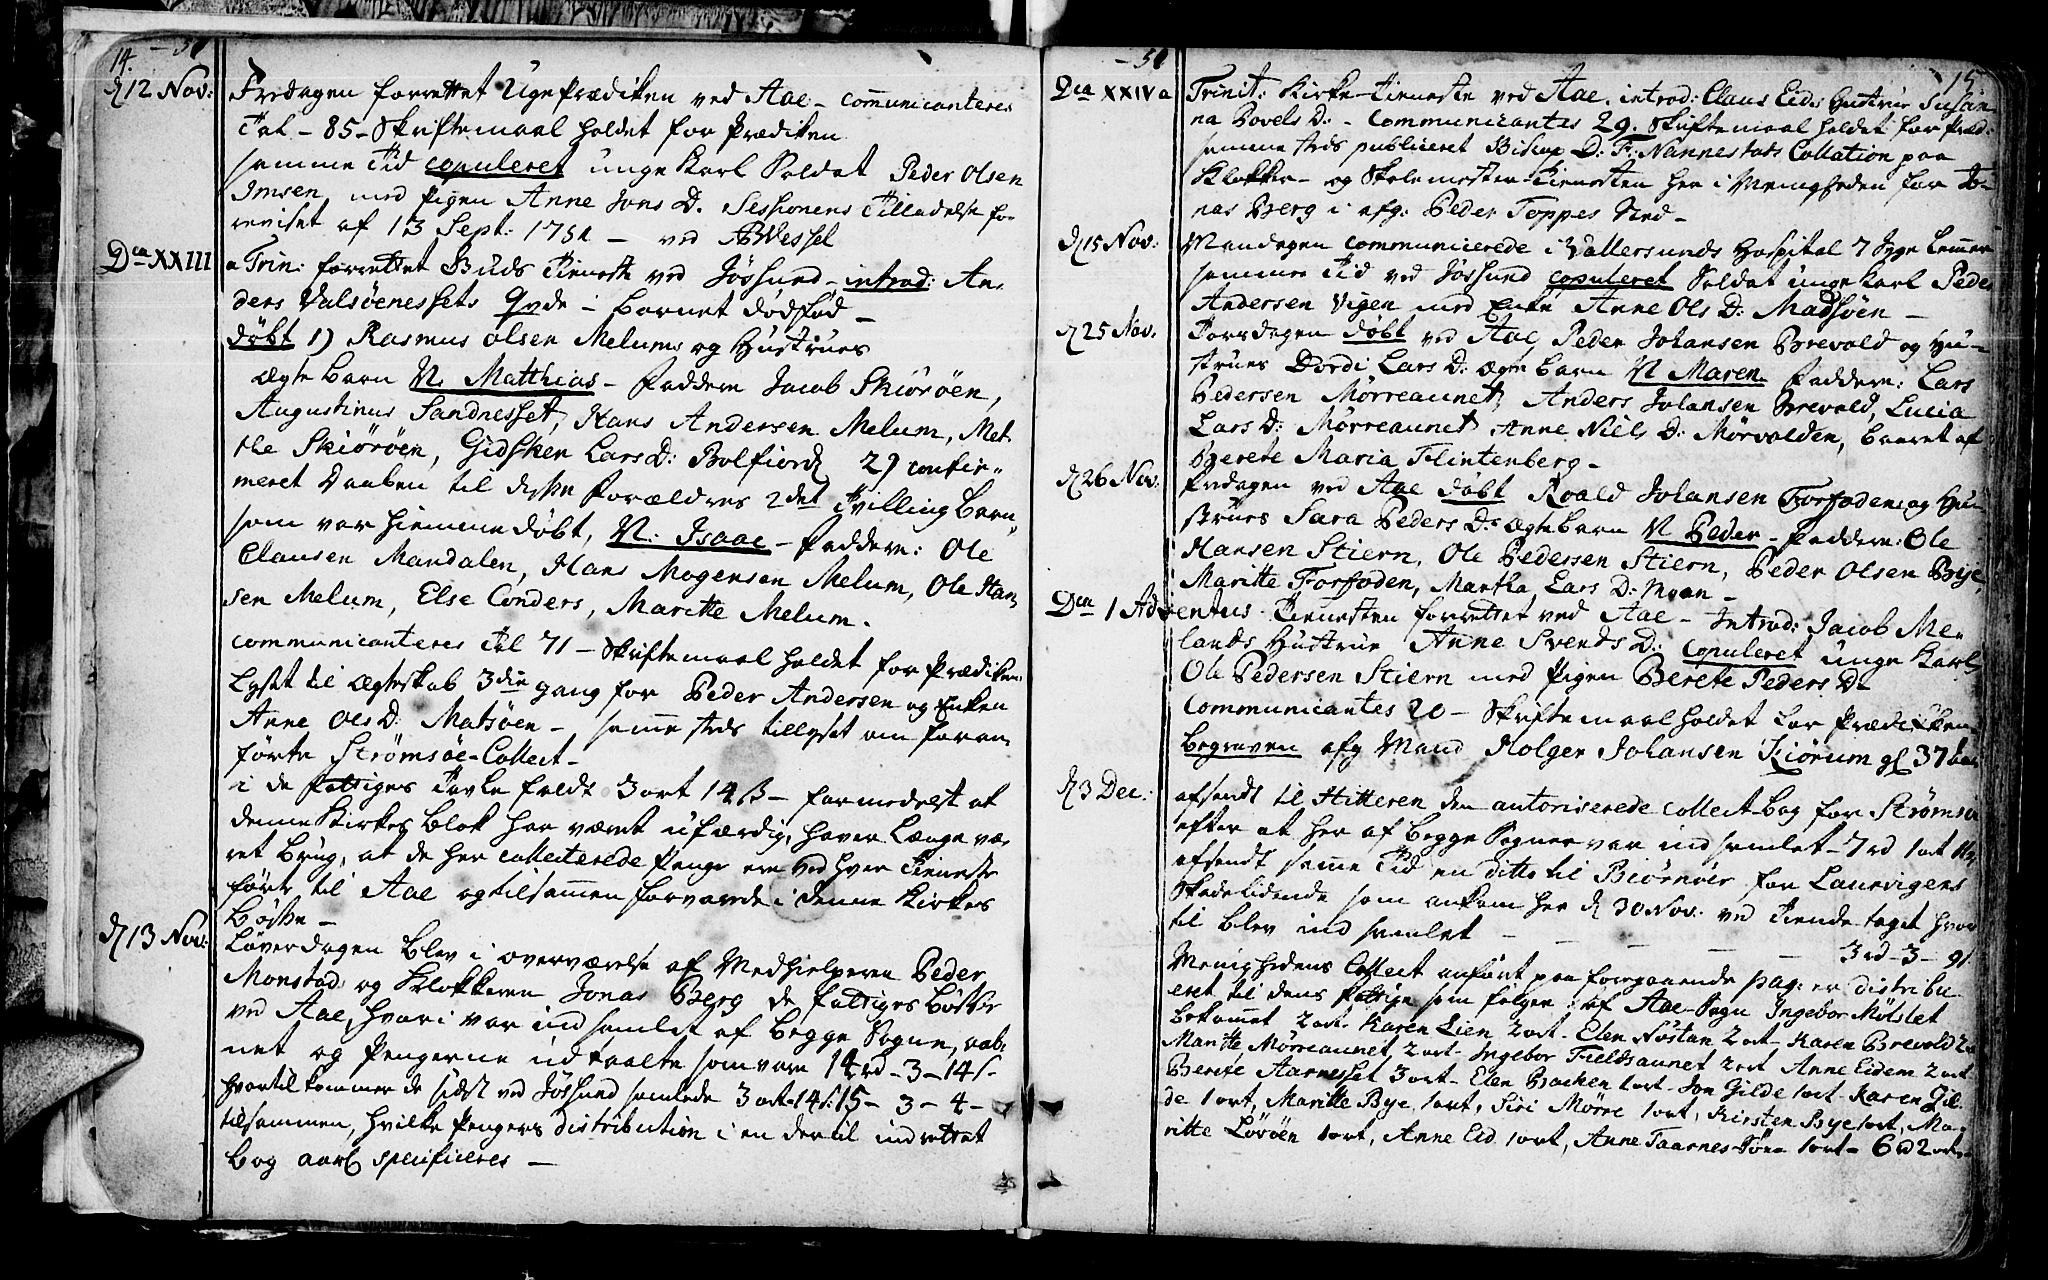 14. - 51
d 12 Nov: Fredagen forrettet Ugeprædiken ved Aae - communicanteres
Tal - 85 - Skriftemaal holdet for Prædiken
samme Tid copuleret unge Karl Soldat Peder Olsen
Imsen med Pigen Anne Jons D. Sessionens Tilladelse fo-
reviset af 13 Sept: 1751 - ved ABWessel
Dca XXIII a Trin: forrettet Guds Tieneste ved Jössund - introd: An-
ders Valsöenessets Qvde - barnet dödfød -
döbt 1) Rasmus Olsen Melums og Hustrues
ægte barn N. Matthias - Faddere Jacob Skiöröen,
Augustinus Sandnesset, Hans Andersen Melum, Met-
the Skiöröen, Gidsken Lars D: Bolfiord 2) confir-
meret Daaben til disse Forældres 2det Tvilling barn
som var hiemme döbt, N. Isaac - Faddere: Ole
Clausen Mandalen, Hans Mogensen Melum, Ole Han-
sen Melum, Else Conders, Maritte Melum.
communicanteres Tal 71 - Skriftemaal holdet for Prædiken
Lyst til ægteskab 3die gang for Peder Andersen og Enken
Anne Ols D. Matsöen - samme steds tillyset om foran-
förte Strömsöe-Collect -
i de fattiges Tavle faldt 3 ort 14 ß - formedelst at
denne Kirkes blok har været ufærdig, haver Længe væ-
ret brug, at de her collecterede Penge ere ved hver Tieneste
fört til Aae og tilsammen forvarede i denne Kirkes
Bösse -
d 13 Nov: Löverdagen blev i overværelse af Medhielperen Peder
Monstad og Klokkeren Jonas Berg de fattiges Bösse
ved Aae, hvori var indsamlet af begge Sogne, aab-
net og Pengerne udtaalte som vare 14 rd - 3 - 14 s -
hvortil kommer de sidst ved Jössund samlede 3 ort - 14 s: 15 - 3 - 4 -
tilsammen, hvilke Pengers distribution i en dertil indrettet
bog aarl specificeres -
- 51 15
Dca XXIV a Trinit: Kirke-Tieneste ved Aae. introd: Claus Eids Hustrue Susan-
na Bovels D. - Communicantes 29. Skriftemaal holdet for Præd:
samme steds publiceret Biskop D: F: Nannestads Collation paa
Klokker- og Skolemester-Tienesten her i Menigheden for Jo-
nas Berg i afg: Peder Toppes Sted -
d 15 Nov: Mandagen communicerede i Vallersunds Hospital 7 syge Lemmer
samme Tid ved Jössund copuleret Soldat unge Karl Peder
Andersen Vigen med Enke Anne Ols D: Madsöen -
d 25 Nov. Torsdagen döbt ved Aae Peder Johansen Brevold og Hu-
strues Dordi Lars D: ægte barn N Maren. Faddere: Lars
Pedersen Mörreaunet, Anders Johansen Brevold, Lucia
Lars D: Mörreaunet Anne Niels D: Mörvolden, baaret af
Berete Maria Flintenberg -
d 26 Nov. Fredagen ved Aae döbt Roald Johansen Forfoden og Hu-
strues Sara Peders D: ægte barn N Peder - Faddere: Ole
Hansen Stiern, Ole Pedersen Stiern, Peder Olsen Bye,
Maritte Forfoden, Martha Lars D: Moan -
Dca 1 Adventus. Tienesten forrettet ved Aae - Introd: Jacob Me-
lands Hustrue Anne Svends D: copuleret unge Karl
Ole Pedersen Stiern med Pigen Berete Peders D:
Communicantes 20 - Skriftemaal holdet for Prædiken
begraven afg Mand Holger Johansen Kiörum gl 37 aar
d 3 Dec: afsendt til Hitteren den autoriserede collect-bog for Strömsö
efter at her af begge Sogner var indsamlet - 7 rd 1 ort
afsendt samme Tid en ditto til Biörnöer for Laurvigens
Skadelidende som ankom her d 30 Nov. ved Tiende taget hvor
til blev indsamlet - - - - 3 rd - 3 - 9 s
Menighedens Collect anfört paa foregaaende pag: er distribu-
eret til dens fattige som fölger: af Aae-Sogn Ingebor Mölslet
bekommet 2 ort. Karen Lien 2 ort - Elen Nöstan 2 ort - Karen Brevold 2
Maritte Mörreaunet 2 ort - Ingebor Fieldsaunet 2 ort Anne Eidem 2 ort
Berete Aarnesset 3 ort - Elen Backen 1 ort - Jon Gilde 1 ort - Karen Gil-
de 1 ort, Maritte Bye 1 ort, Siri Mörre 1 ort, Kirsten Bye 1 ort, Ma-
ritte Löröen 1 ort, Anne Eid 1 ort, Anne Taarnes-Töne 1 ort - 6 rd 2 ort -